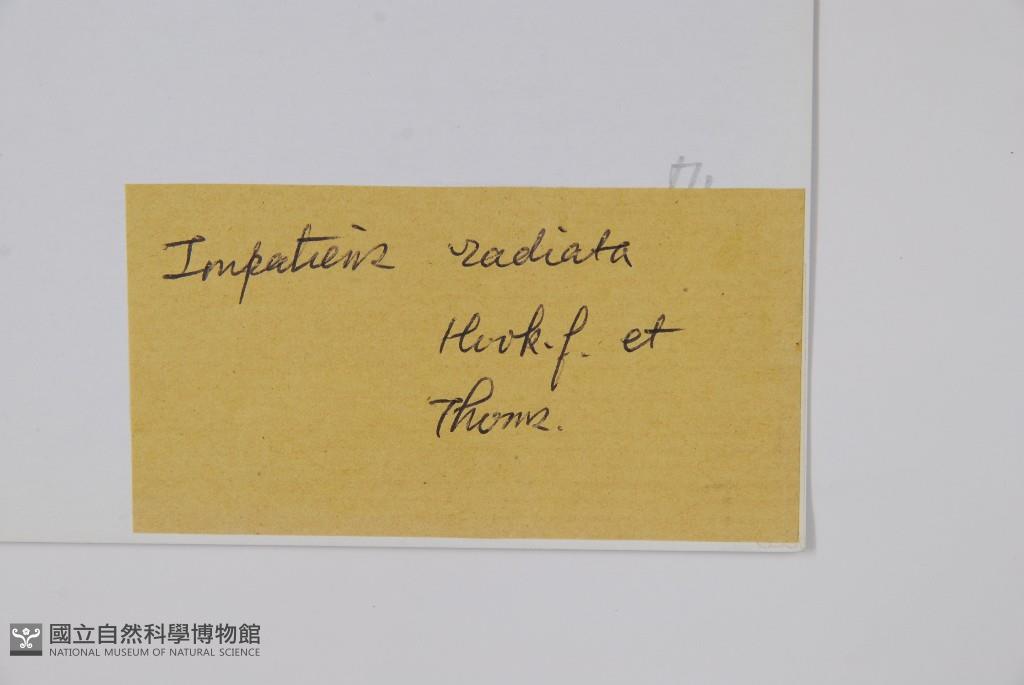 Impatiens radiata
Hook.f. et
Thoms.
國立自然科學博物館
NATIONAL MUSEUM OF NATURAL SCIENCE